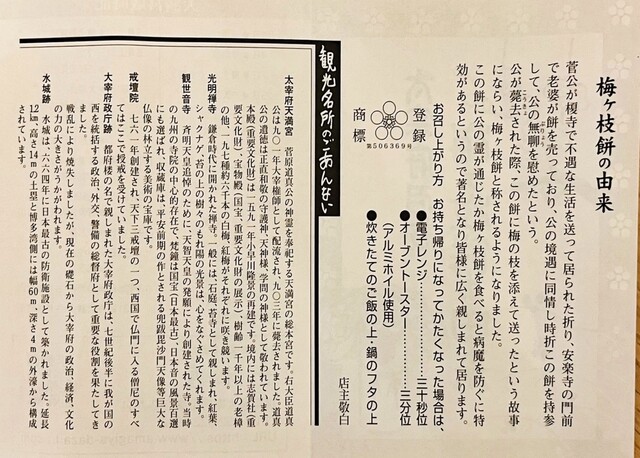 梅ヶ枝餅の由来
菅公が榎寺で不遇な生活を送って居られた折り、安楽寺の門前
で老婆が餅を売っており、公の境遇に同情し時折この餅を持参
して、公の無聊を慰めたという。
公が薨去された際、この餅に梅の枝を添えて送ったという故事
にならい、梅ヶ枝餅と称されるようになりました。
この餅に公の霊が通じたか梅ヶ枝餅を食べると病魔を防ぐに特
効があるというので著名となり皆様に広く親しまれて居ります。
店主敬白
登録
商標
第506369号
お召し上がり方 お持ち帰りになってかたくなった場合は、
●電子レンジ………………三十秒位
●オーブントースター………三分位
(アルミホイル使用)
●炊きたてのご飯の上・鍋のフタの上
観光名所のごあんない
太宰府天満宮 菅原道真公の神霊を奉祀する天満宮の総本宮です。右大臣道真
公は九〇一年大宰権師として配流され、九〇三年に薨去されました。道真
公の遺徳は正直和敬の守護神、天神様、学問の神様として敬われています。
本殿(重要文化財)は一五九一年小早川隆景の再建です。境内には志賀社(重
要文化財)、宝物殿(国宝、重要文化財の展示)、樹齢一千年以上の老樟
の他、一九七種約六千本の白梅、紅梅がそれぞれに咲き競います。
光明禅寺 鎌倉時代に開かれた禅寺。一般には「石庭、苔寺として親しまれ、紅葉、
シャクナゲ、苔の上の樹々のもれ陽の光景は、心をなぐさめてくれます。
観世音寺 斉明天皇追悼のために、天智天皇の発願により創建された寺。当時
の九州の寺院の中心的存在で、梵鐘は国宝(日本最古)、日本音の風景百選
にも選ばれ、収蔵庫は、平安前期の作とされる兜跋毘沙門天像等巨大な
仏像の林立する美術の宝庫です。
戒壇院 七六一年創建され、天下三戒壇の一つ、西国で仏門に入る僧尼のすべ
てはここで授戒を受けていました。
大宰府政庁跡 都府楼の名で親しまれた大宰府政庁は、七世紀後半に我が国の
西を統括する政治、外交、警備の総督府として重要な役割を果たしてき
戦乱により焼失しましたが、現在の礎石から大宰府の政治、経済、文化
の力の大きさがうかがわれます。
水城跡 水城は、六六四年に日本最古の防衛施設として築かれました。延長
1.2㎞、高さ14mの土塁と博多湾側には幅60m、深さ4mの外濠から構成
されています。